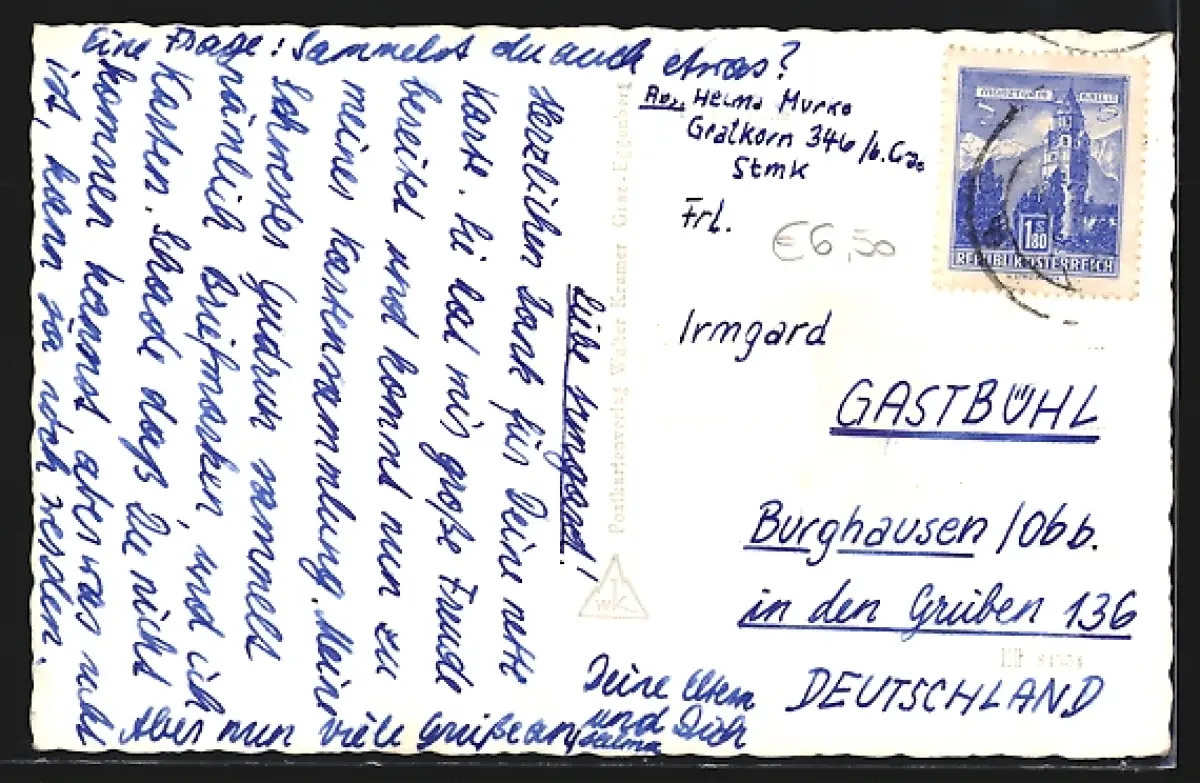 Eine Frage: Sammelst du auch etwas?
Liebe Irmgard!
Herzlichen Dank für Deine nette
Karte. Sie hat mir große Freude
bereitet und kommt nun zu
meiner Kartensammlung. Meine
Schwester Gudrun sammelt
nämlich Briefmarken, und ich
Karten. Schade daß Du nicht
kommen kannst aber was nicht
ist, kann ja noch werden.
Aber nun viele Grüße an
Deine Eltern
und Dich
Helma
Postkartenverlag Walter Kramer Graz-Eggenberg
WK
Abs. Helma Murko
Gratkorn 346 /b. Graz
Stmk
Frl.
€6,50
Irmgard
GASTBÜHL
Burghausen /Obb.
in den Grüben 136
DEUTSCHLAND
MÜNZTURM HALL I.T.
1.80
S
REPUBLIK ÖSTERREICH